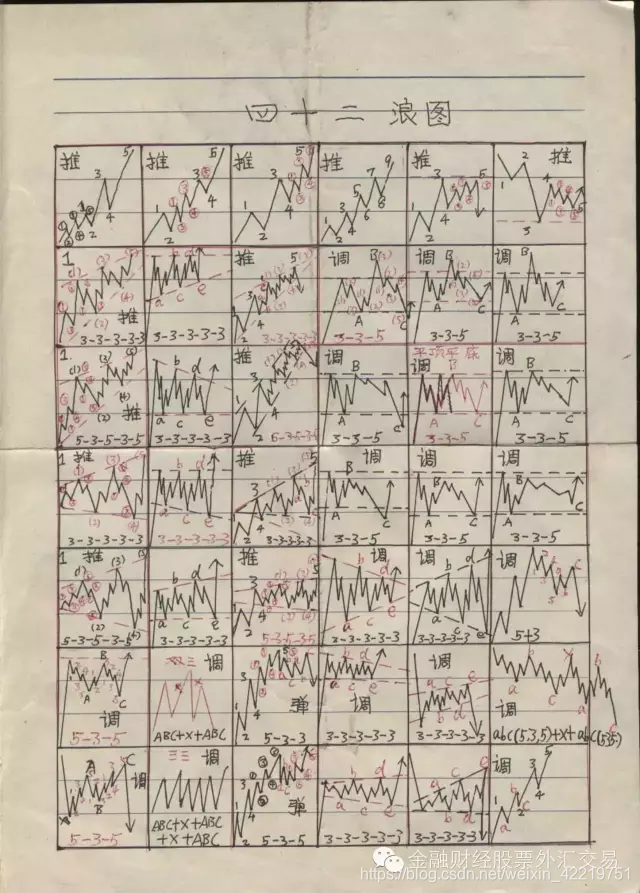 四十二浪图
推 3 5 4 2
推 1 2 3 4 5
推 1 2 3 4 5
推 1 2 3 4 5 6 7 8 9
推 1 2 3 4 5
推 1 2 3
1 推 3-3-3-3-3
a b c d e 3-3-3-3-3
推 1 2 3 4 5 3-3-3-3-3
调 A B 3-3-5
调 A B C 3-3-5
调 A B C 3-3-5
1 推 5-3-5-3-5
a b c d e 3-3-3-3-3
推 1 2 3 4
调 A B C 3-3-5
平顶平底
调 B C 3-3-5
调 A B C 3-3-5
1 推 3-3-3-3-3
a b c d e 3-3-3-3-3
推 1 2 3 4 5 3-3-3-3-3
调 A B C 3-3-5
调 A B C 3-3-5
调 A B C 3-3-5
1 推 5-3-5-3-5
a b c d e 3-3-3-3-3
推 1 2 3 4 5 5-3-5-3-5
调 a b c d e 3-3-3-3-3
调 a b c d e 3-3-3-3-3
调 5+3
A B C 调 5-3-5
双三 调 ABC+X+ABC
1 2 3 4 5 弹 5-3-3
a b c d e 调 3-3-3-3-3
调 a b c d e 3-3-3-3-3
调 abc(5.3.5)+x+abc(535)
A B C 调 5-3-5
三三 调 ABC+X+ABC
+X+ABC
1 2 3 4 弹 5-3-5
a b c d e 3-3-3-3-3
a b c d e 3-3-3-3-3
调 1 2 3 4 5
金融财经股票外汇交易
https://blog.csdn.net/weixin_42219751